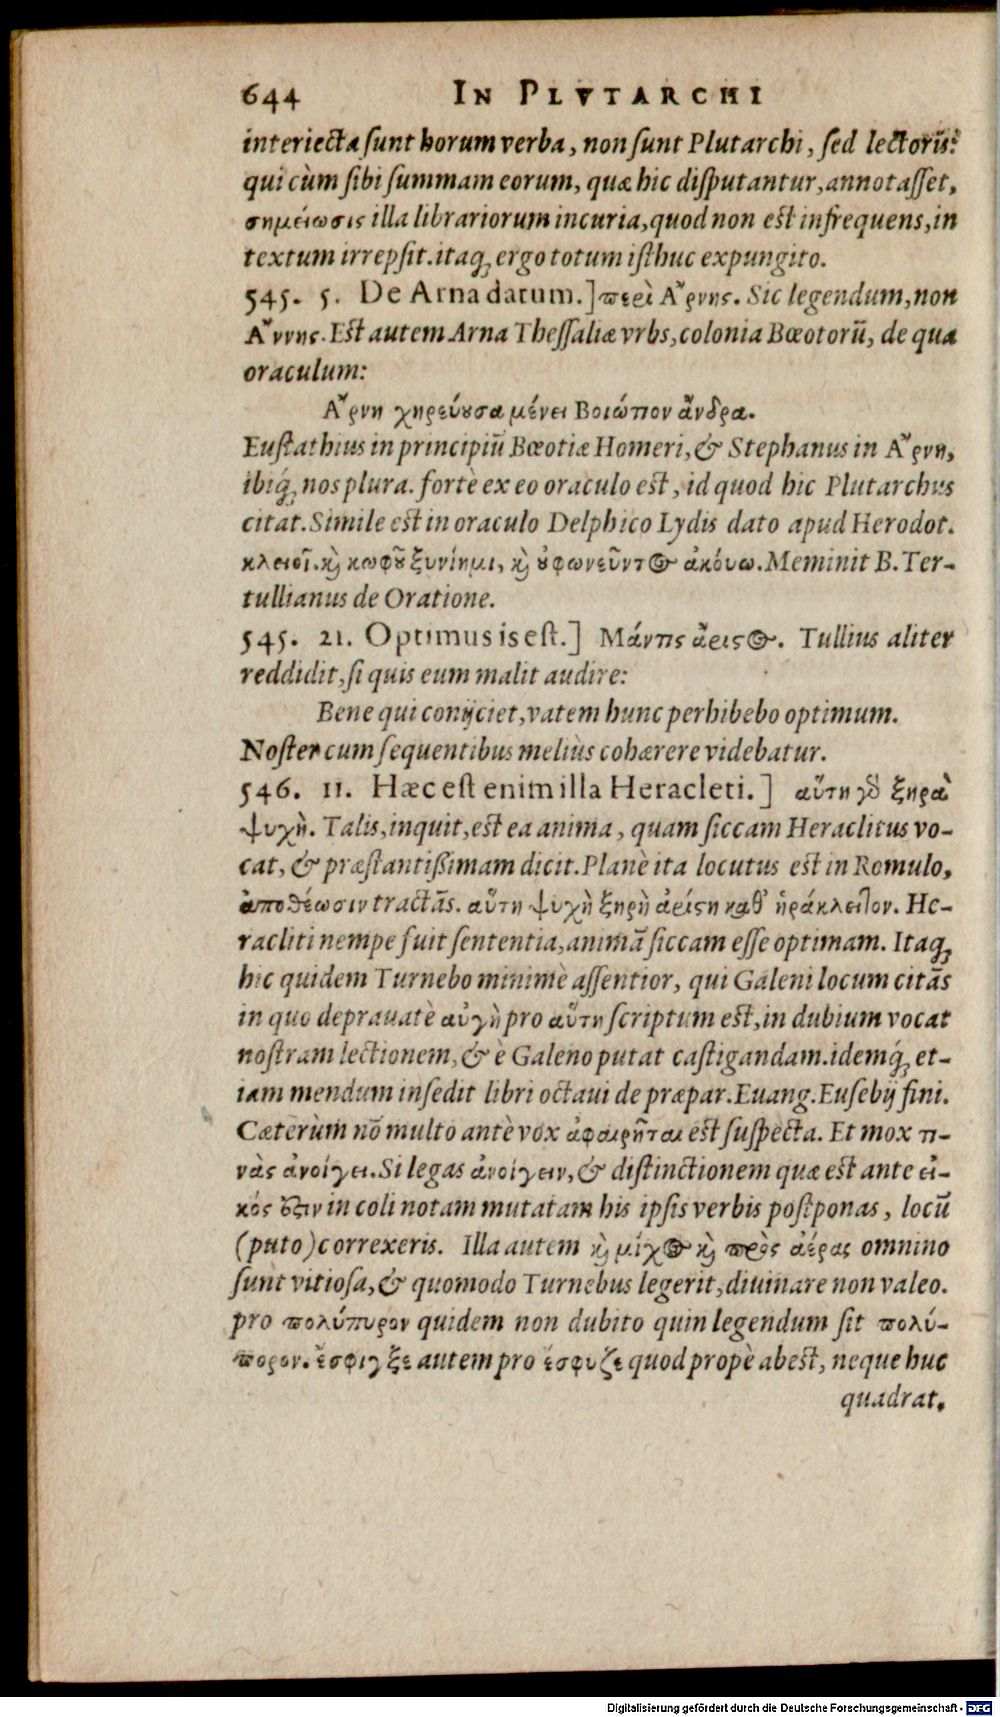 644 IN PLVTARCHI
interiecta sunt horum verba, non sunt Plutarchi, sed lectorū:
qui cùm sibi summam eorum, quæ hic disputantur, annotasset,
σημείωσις illa librariorum incuria, quod non est infrequens, in
textum irrepsit. itaq; ergo totum isthuc expungito.
545. 5. De Arna datum.] περὶ Ἄρνης. Sic legendum, non
Ἄννης. Est autem Arna Thessaliæ vrbs, colonia Bœotorū, de qua
oraculum:
Ἄρνη χηρεύουσα μένει Βοιώτιον ἄνδρα.
Eustathius in principiū Bœotiæ Homeri, & Stephanus in Ἄρνη,
ibiq́; nos plura. fortè ex eo oraculo est, id quod hic Plutarchus
citat. Simile est in oraculo Delphico Lydis dato apud Herodot.
κλειοῖ. καὶ κωφοῦ ξυνίημι, καὶ οὐ φωνεῦντος ἀκούω. Meminit B. Ter-
tullianus de Oratione.
545. 21. Optimus is est.] Μάντις ἄριστος. Tullius aliter
reddidit, si quis eum malit audire:
Bene qui conijciet, vatem hunc perhibebo optimum.
Noster cum sequentibus meliùs cohærere videbatur.
546. 11. Hæc est enim illa Heracleti.] αὕτη γὰρ ξηρὰ
ψυχὴ. Talis, inquit, est ea anima, quam siccam Heraclitus vo-
cat, & præstantißimam dicit. Planè ita locutus est in Romulo,
ἀποθέωσιν tractās. αὕτη ψυχὴ ξηρὴ ἀρίστη καθ' ἡράκλειτον. He-
racliti nempe fuit sententia, animā siccam esse optimam. Itaq;
hic quidem Turnebo minimè assentior, qui Galeni locum citās
in quo deprauatè αὐγὴ pro αὕτη scriptum est, in dubium vocat
nostram lectionem, & è Galeno putat castigandam. idemq́; et-
iam mendum insedit libri octaui de præpar. Euang. Eusebij fini.
Cæterùm nō multo antè vox ἀφαιρῆται est suspecta. Et mox τι-
νὰς ἀνοίγει. Si legas ἀνοίγειν, & distinctionem quæ est ante εἰ-
κός ἐστιν in coli notam mutatam his ipsis verbis postponas, locū
(puto) correxeris. Illa autem καὶ μίχος καὶ πρὸς ἀέρας omnino
sunt vitiosa, & quomodo Turnebus legerit, diuinare non valeo.
pro πολύπυρον quidem non dubito quin legendum sit πολύ-
πορον. ἔσφιγξε autem pro ἔσφυζε quod propè abest, neque huc
quadrat.
Digitalisierung gefördert durch die Deutsche Forschungsgemeinschaft - DFG